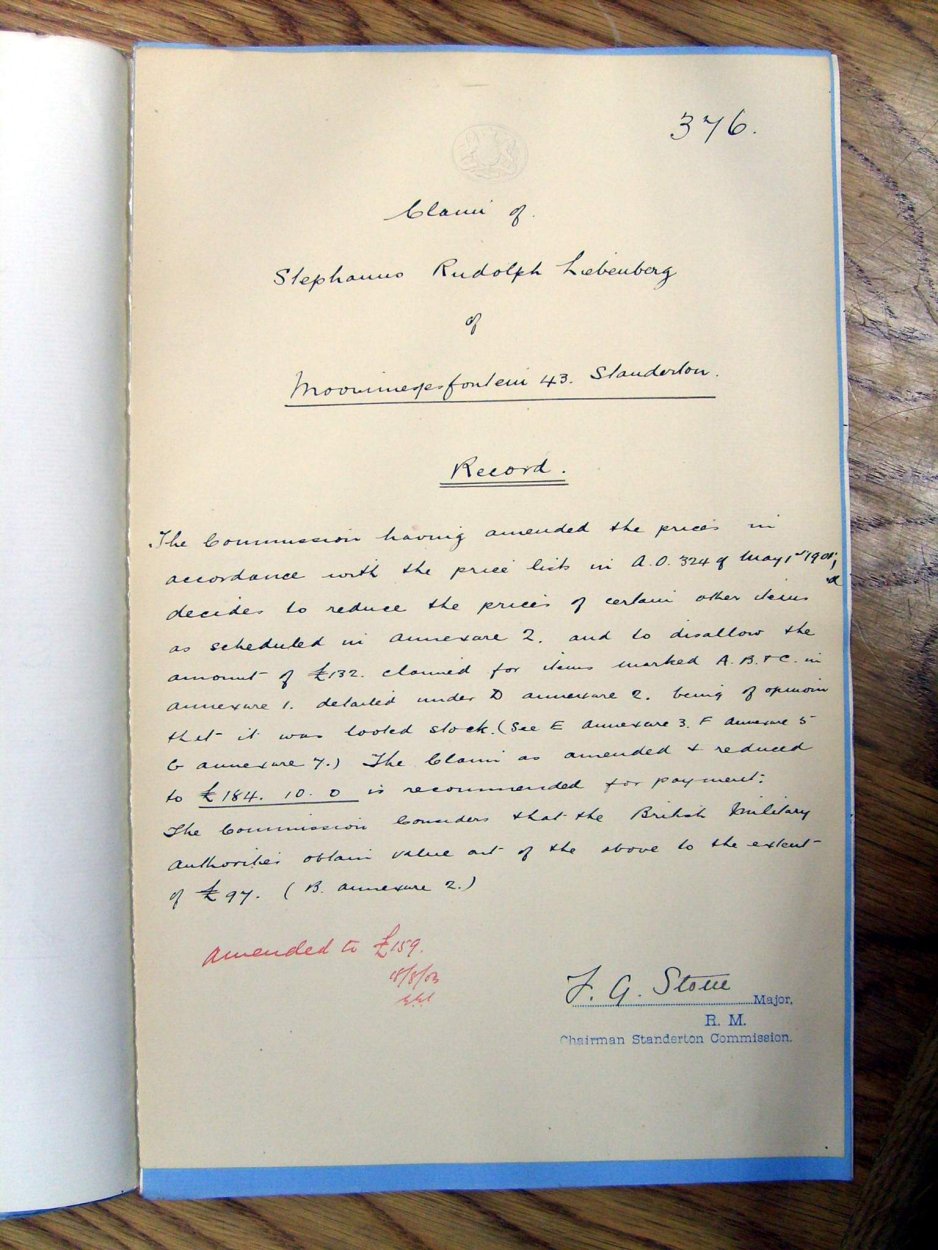 376.
Claim of.
Stephanus Rudolph Liebenberg
of
43. Standerton.
Record.
The Commission having amended the prices in
accordance with the price lists in A.O. 324 of May 1st 1901,
decides to reduce the prices of certain other items
as scheduled in annexure 2. and to disallow the
amount of £132. claimed for items marked A. B. & C. in
annexure 1. detailed under D annexure 2. being of opinion
that it was looted stock. (See E annexure 3. F annexure 5
G annexure 7.) The Claim as amended & reduced
to £184. 10. 0 is recommended for payment.
The Commission Considers that the British Military
Authorities obtain value out of the above to the extent
of £97. (B. annexure 2.)
amended to £159.
18/8/03
F. G. Stone
Major,
R. M.
Chairman Standerton Commission.